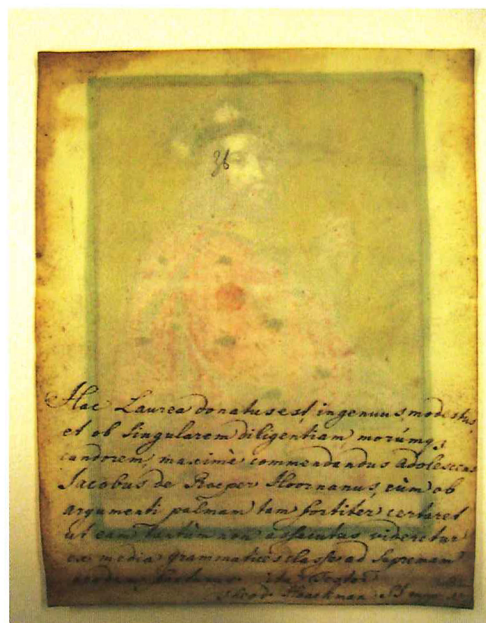 36
Hac Laurea donatus est, ingenuus, modestus,
et ob singularem diligentiam, morúmq,
candorem, maximè commendandus Adolescens
Jacobus de Hoornanus, cùm ob
argumenti palmam tam fortiter certaret
ut eam tantùm non assecutus videretur
ex media grammatices classe ad supremam
Haackman